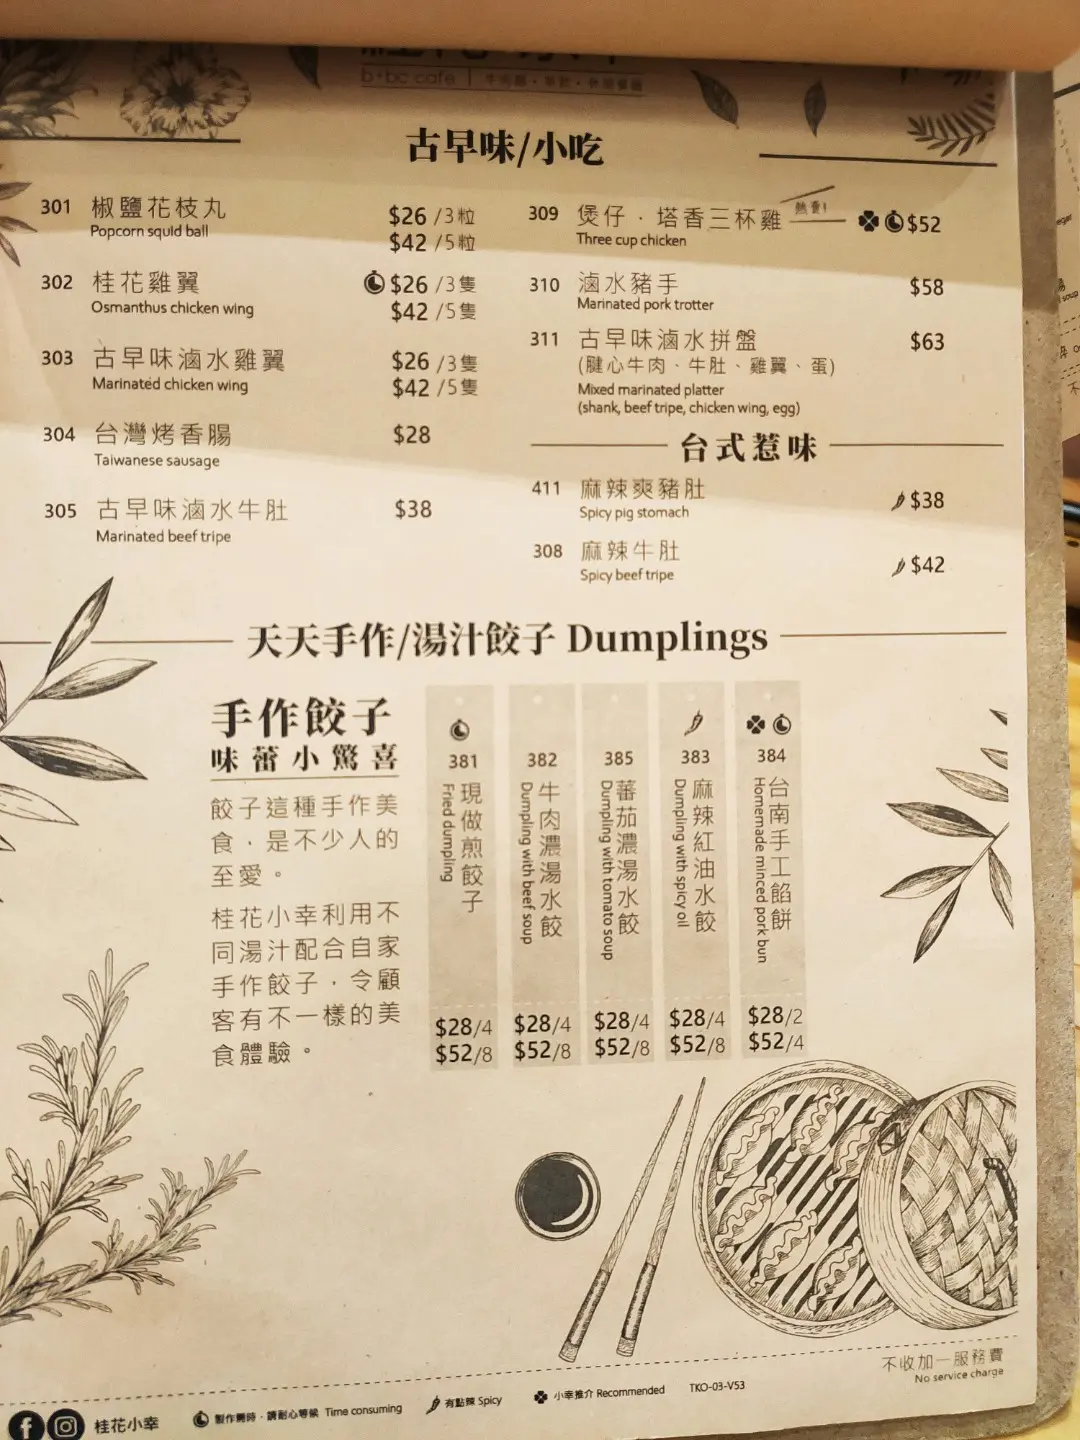 b+bc cafe
古早味/小吃
301 椒鹽花枝丸 $26 /3粒
Popcorn squid ball $42 /5粒
302 桂花雞翼 $26 /3隻
Osmanthus chicken wing $42 /5隻
303 古早味滷水雞翼 $26 /3隻
Marinated chicken wing $42 /5隻
304 台灣烤香腸 $28
Taiwanese sausage
305 古早味滷水牛肚 $38
Marinated beef tripe
309 煲仔．塔香三杯雞 熱賣! $52
Three cup chicken
310 滷水豬手 $58
Marinated pork trotter
311 古早味滷水拼盤 $63
(腱心牛肉、牛肚、雞翼、蛋)
Mixed marinated platter
(shank, beef tripe, chicken wing, egg)
台式惹味
411 麻辣爽豬肚 $38
Spicy pig stomach
308 麻辣牛肚 $42
Spicy beef tripe
天天手作/湯汁餃子 Dumplings
手作餃子
味蕾小驚喜
餃子這種手作美
食，是不少人的
至愛。
桂花小幸利用不
同湯汁配合自家
手作餃子，令顧
客有不一樣的美
食體驗。
381
現做煎餃子
Fried dumpling
$28/4
$52/8
382
牛肉濃湯水餃
Dumpling with beef soup
$28/4
$52/8
385
蕃茄濃湯水餃
Dumpling with tomato soup
$28/4
$52/8
383
麻辣紅油水餃
Dumpling with spicy oil
$28/4
$52/8
384
台南手工餡餅
Homemade minced pork bun
$28/2
$52/4
不收加一服務費
No service charge
桂花小幸 製作需時，請耐心等候 Time consuming 有點辣 Spicy 小幸推介 Recommended TKO-03-V53